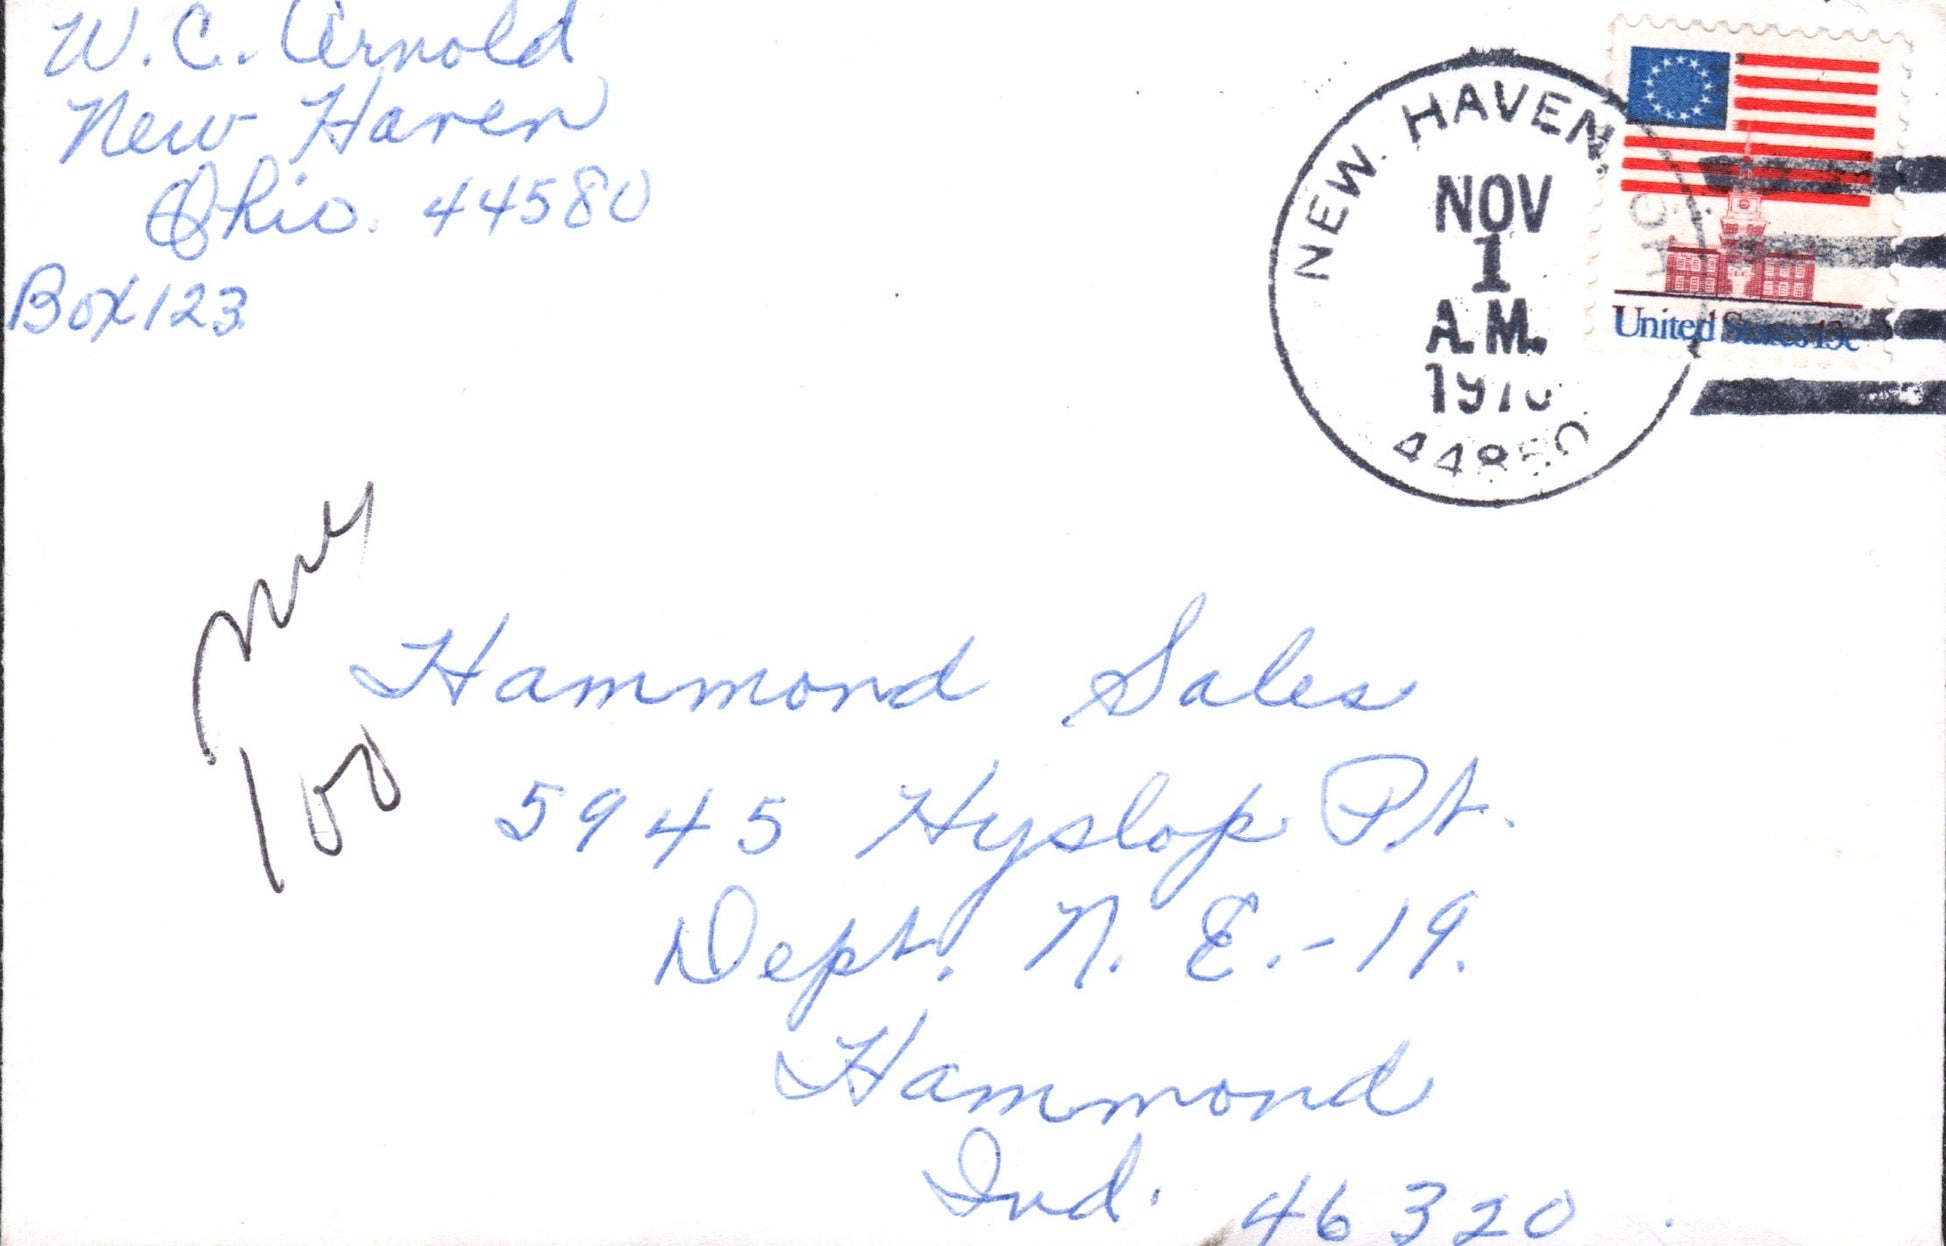 W. C. Arnold
New Haven
Ohio. 44580
Box 123
NEW HAVEN, OH
NOV
1
A.M.
1976
44850
United States 13c
100
Hammond Sales
5945 Hyslop Pt.
Dept. N. E.-19.
Hammond
Ind. 46320